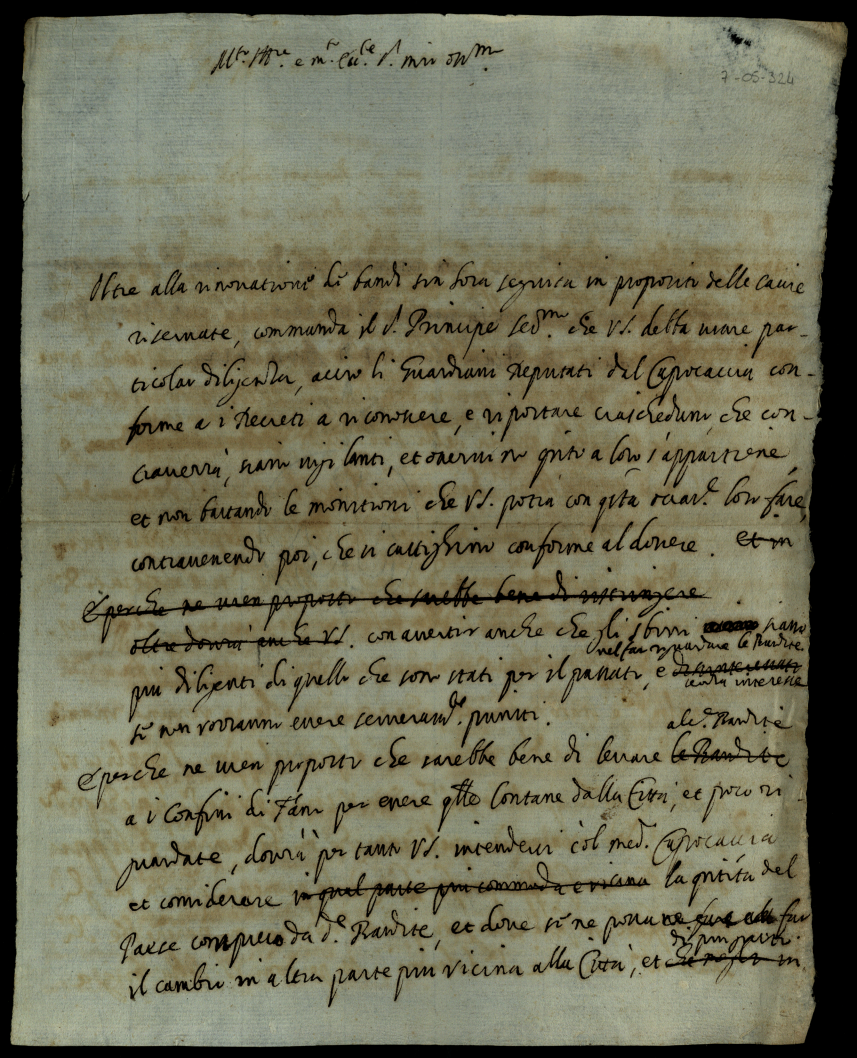 Mto Illre e mto Ecclte Sr mio ossmo
7-05-324
Oltre alla rinovatione de bandi sin hora seguita in proposito delle caccie
riservate, commanda il Sr Principe Sermo che VS. debba usare par-
ticolar diligenza, acciò li Guardiani Deputati dal Capocaccia con-
forme a i Decreti a riconoscere, e riportare ciascheduno, che con-
traverrà, siano vigilanti, et osservino qnto a loro s'appartiene,
et non bastando le monitioni che VS. potrà con qsta loro fare,
contravenendo poi, che si castighino conforme al dovere. et in
E perche ne vien proposto che sarebbe bene di ristringere
oltre dovrà anche VS. con avertir anche che gli sbirri siano
nel far riguardare le Bandite
più diligenti di quello che sono stati per il passato, e disinteressati
senza interesse
se non vorranno essere severamte puniti.
a le d. Bandite
E perche ne vien proposto che sarebbe bene di levare le Bandite
a i Confini di Fano per essere qlle lontane dalla Città, et poco ri-
guardate, dovrà per tanto VS. intendersi col med. Capocaccia
et considerare in qual parte più commoda e vicina la qntità del
Paese compreso da de Bandite, et dove se ne possa far
di pin
il cambio in altra parte più vicina alla Città, et che in